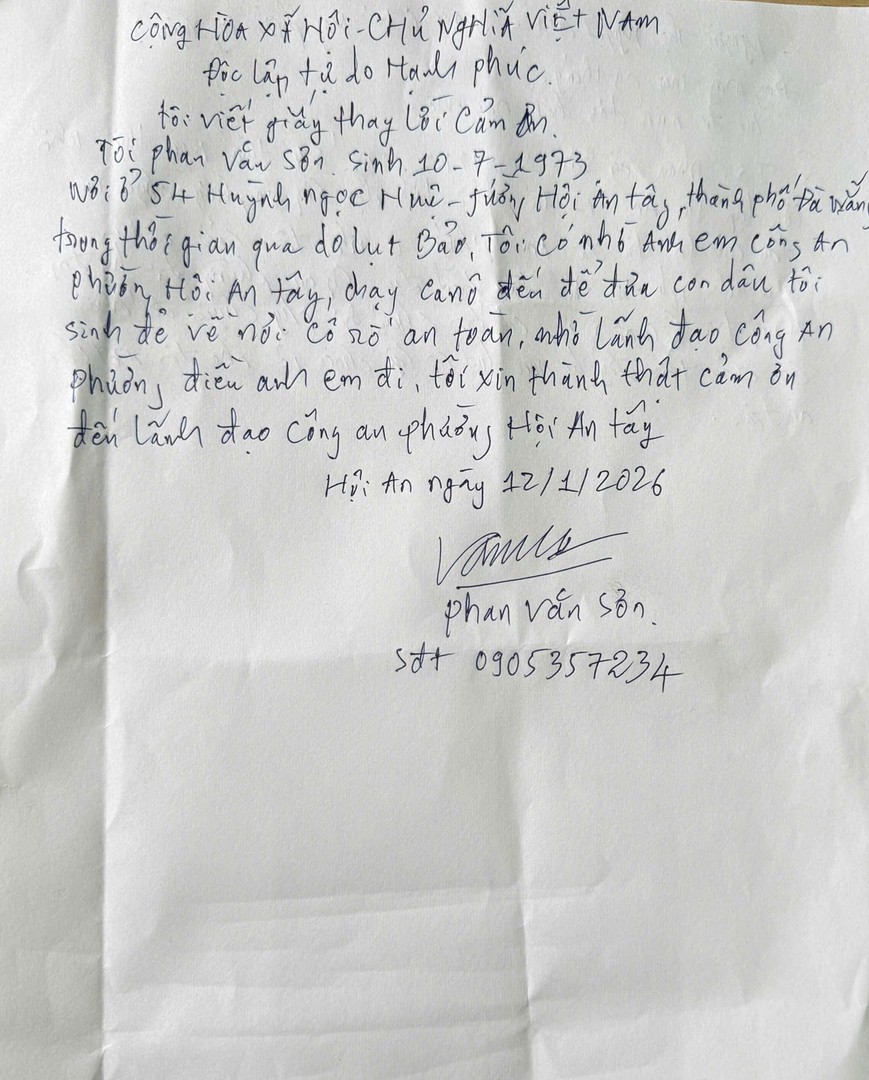 CỘNG HÒA XÃ HÔI-CHỦ NGHĨA VIỆT NAM
Độc lập tự do Hạnh phúc.
tôi viết giấy thay lời Cảm Ơn.
Tôi phan Văn Sơn. Sinh 10-7-1973
Nơi ở 54 Huỳnh ngọc Huệ-fường Hội An tây, thành phố Đà nẵng
trong thời gian qua do lụt Bảo, Tôi có nhờ Anh em công An
phường Hôi An tây, chạy canô đến để đưa con dâu tôi
sinh đẻ về nơi cố sở an toàn, nhờ lãnh đạo công An
phường điều anh em đi, tôi xin thành thât cảm ơn
đến lãnh đạo Công an phường Hội An tây
Hội An ngày 12/1/2026
phan Văn Sơn.
Sđt 0905357234